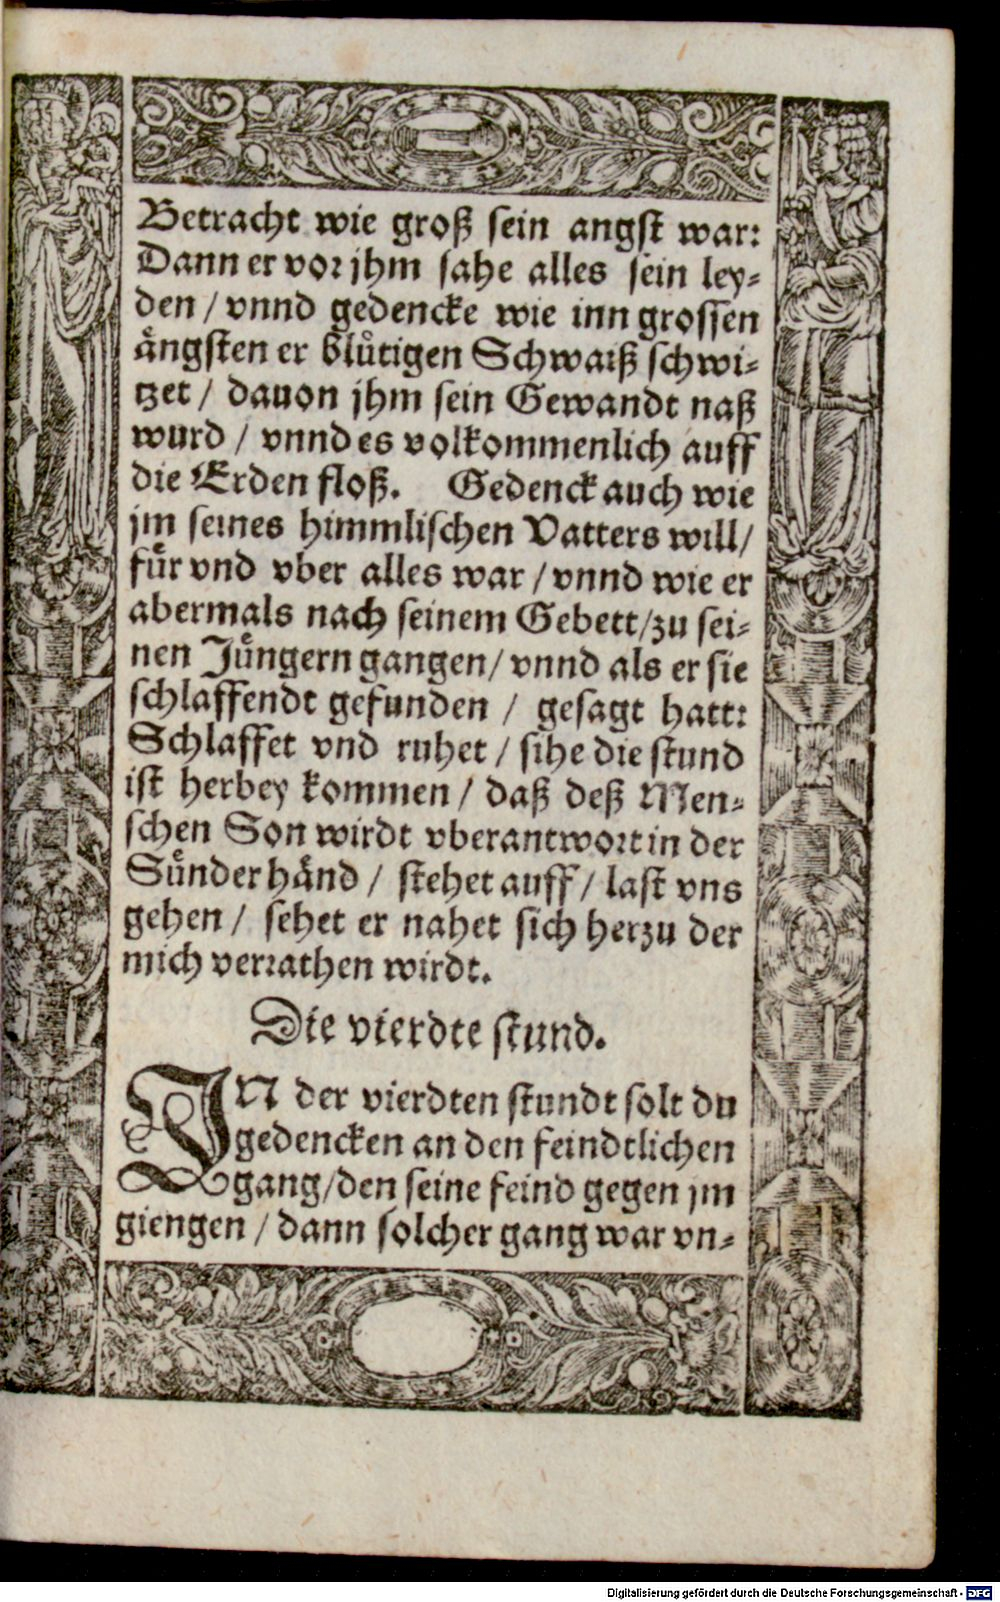 Betracht wie groß sein angst war:
Dann er vor jhm sahe alles sein ley-
den / vnnd gedencke wie inn grossen
aͤngsten er bluͤtigen Schwaiß schwi-
tzet / dauon jhm sein Gewandt naß
wurd / vnnd es volkommenlich auff
die Erden floß. Gedenck auch wie
jm seines himmlischen Vatters will/
fuͤr vnd vber alles war / vnnd wie er
abermals nach seinem Gebett/zu sei-
nen Juͤngern gangen/ vnnd als er sie
schlaffendt gefunden / gesagt hatt:
Schlaffet vnd ruhet / sihe die stund
ist herbey kommen / daß deß Men-
schen Son wirdt vberantwort in der
Suͤnder haͤnd / stehet auff / last vns
gehen / sehet er nahet sich herzu der
mich verrathen wirdt.
Die vierdte stund.
IN der vierdten stundt solt du
gedencken an den feindtlichen
gang/den seine feind gegen jm
giengen / dann solcher gang war vn-
Digitalisierung gefördert durch die Deutsche Forschungsgemeinschaft - DFG